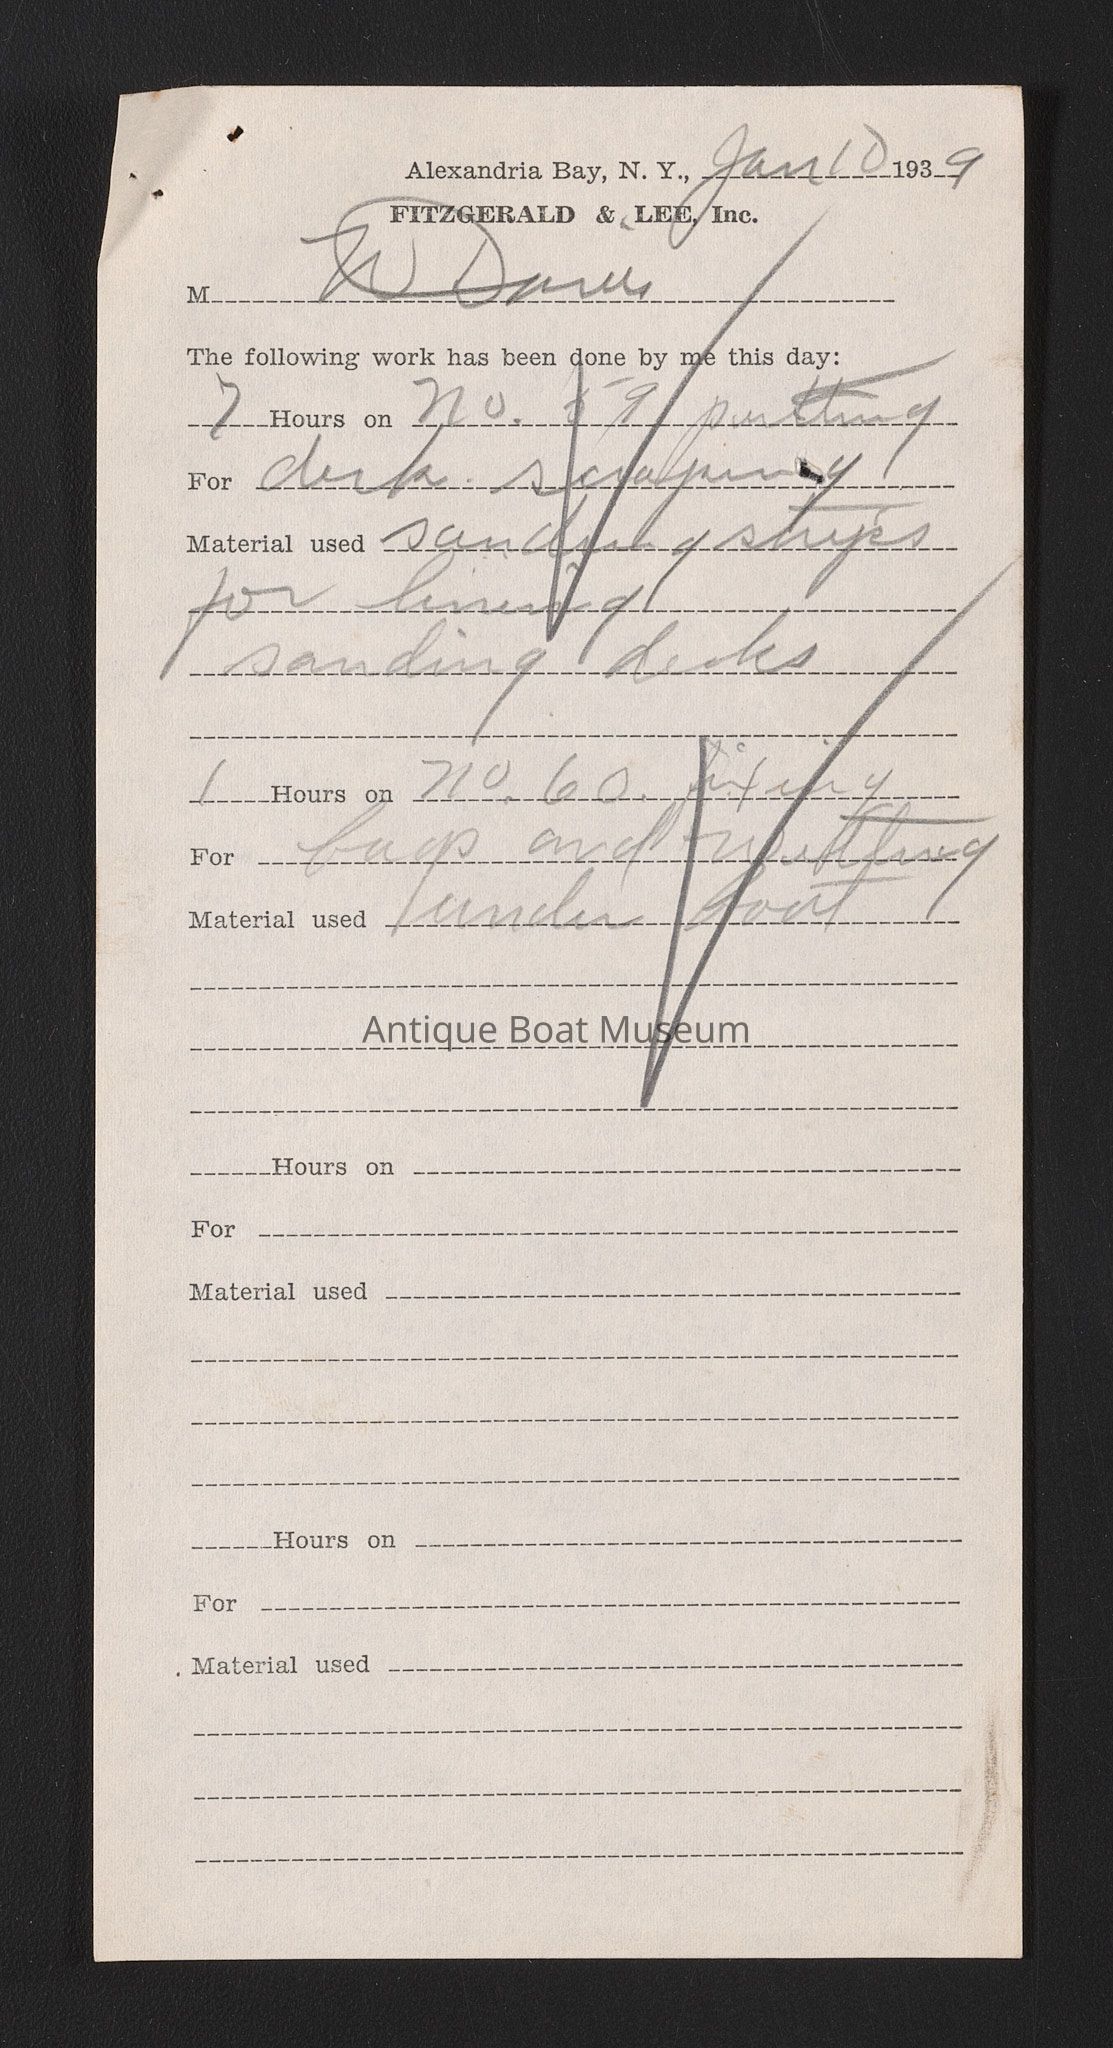 Alexandria Bay, N. Y., Jan 10 1939
FITZGERALD & LEE, Inc.
M W Davis
The following work has been done by me this day:
7 Hours on No. 59 putting
For deck scraping
Material used sanding strips
for lining
sanding decks
1 Hours on No. 60. fixing
For bags and wetting
Material used under boat
Antique Boat Museum
Hours on
For
Material used
Hours on
For
Material used